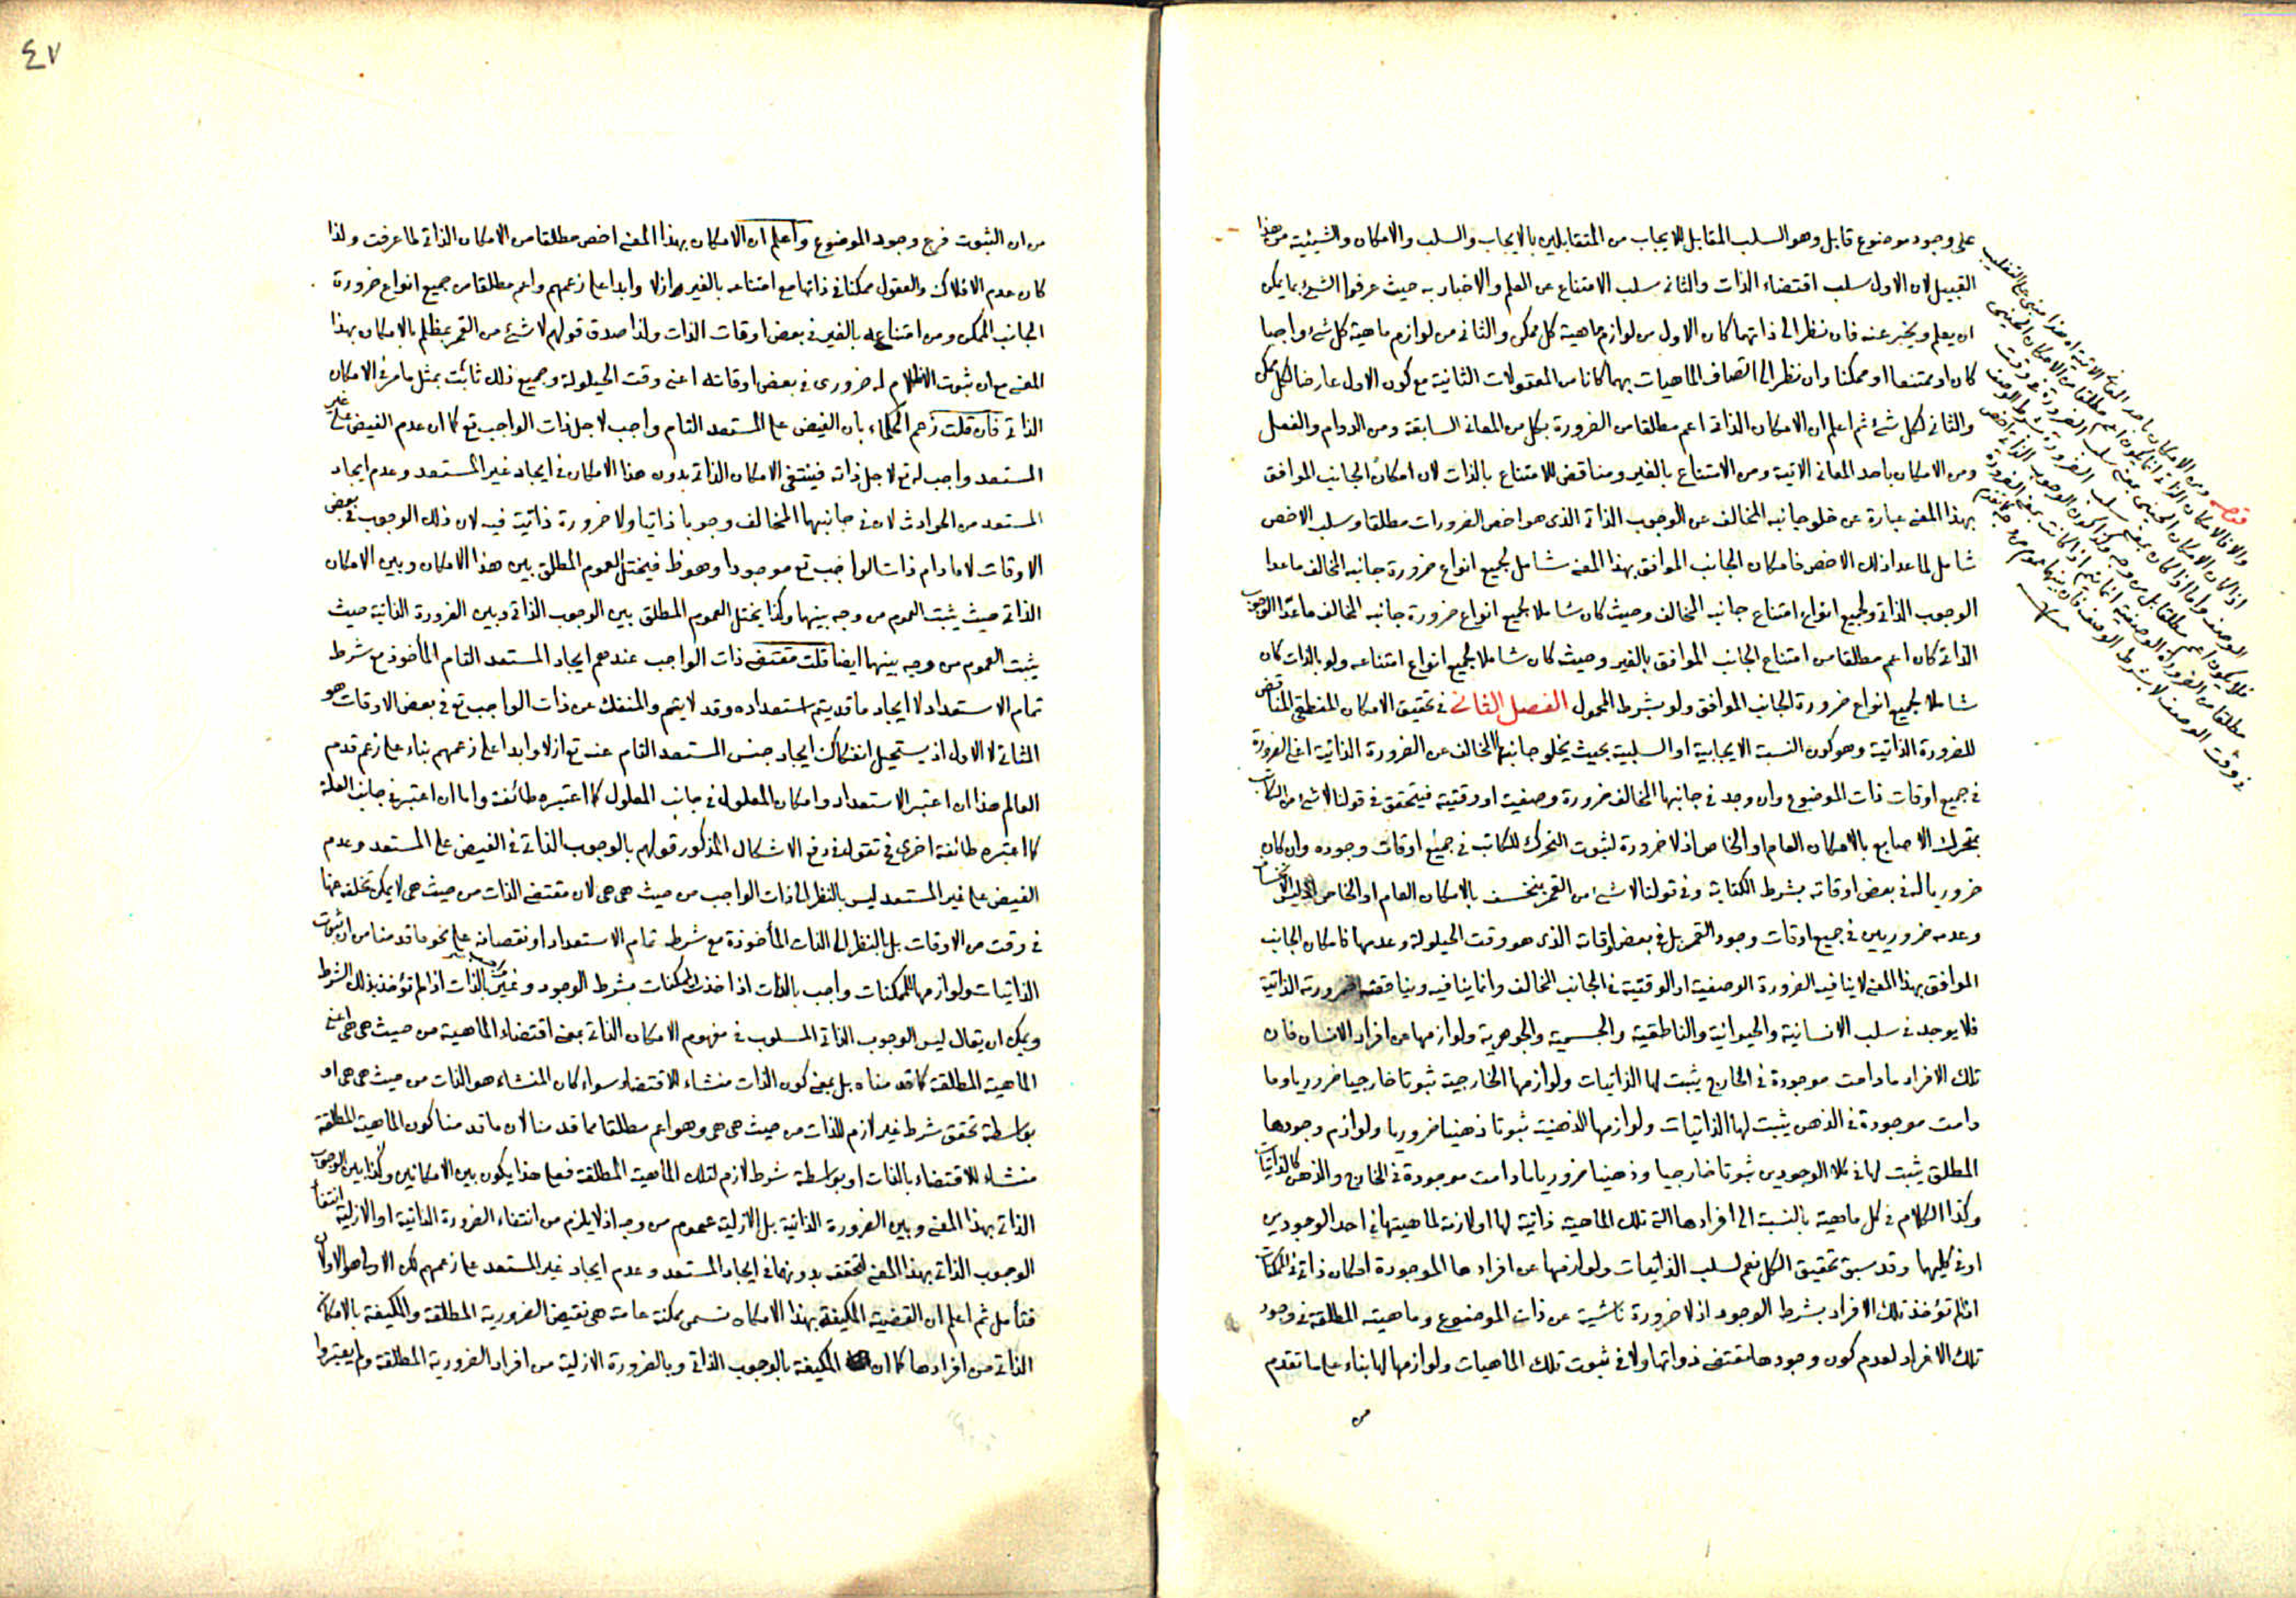 على وجود موضوع قابل وهو السلب المقابل للايجاب من المتقابلين بالايجاب والسلب والامكان والشيئية من هذا
القبيل لان الاول سلب اقتضاء الذات والثانى سلب الامتناع عن العلم والاخبار به حيث عرفوا الشئ بما يمكن
ان يعلم ويخبر عنه فان نظر الى ذاتهما كان الاول من لوازم ماهية كل ممكن والثانى من لوازم ماهية كل شئ واجبا
كان او ممتنعا او ممكنا وان نظر الى اتصاف الماهيات بهما كانا من المعقولات الثانية مع كون الاول عارضا لكل ممكن
والثانى لكل شئ ثم اعلم ان الامكان الذاتى اعم مطلقا من الضرورة بكل من المعانى السابقة ومن الدوام والفعل
ومن الامكان باحد المعانى الاتية ومن الامتناع بالغير ومناقض للامتناع بالذات لان امكان الجانب الموافق
بهذا المعنى عبارة عن خلو جانبه المخالف عن الوجوب الذاتى الذى هو اخص الضرورات مطلقا وسلب الاخص
شامل لما عدا ذلك الاخص فامكان الجانب الموافق بهذا المعنى شامل لجميع انواع ضرورة جانبه المخالف ما عدا
الوجوب الذاتى ولجميع انواع امتناع جانبه المخالف وحيث كان شاملا لجميع انواع ضرورة جانبه المخالف ما عدا الوجوب
الذاتى كان اعم مطلقا من امتناع الجانب الموافق بالغير وحيث كان شاملا لجميع انواع امتناعه ولو بالذات كان
شاملا لجميع انواع ضرورة الجانب الموافق ولو بشرط المحمول الفصل الثانى فى تحقيق الامكان المنطقى المناقض
للضرورة الذاتية وهو كون النسبة الايجابية او السلبية بحيث يخلو جانبها المخالف عن الضرورة الذاتية اعنى الضرورة
فى جميع اوقات ذات الموضوع وان وجد فى جانبها المخالف ضرورة وصفية او وقتية فيتحقق فى قولنا لا شئ من الكاتب
بمتحرك الاصابع بالامكان العام او الخاص اذ لا ضرورة لثبوت التحرك للكاتب فى جميع اوقات وجوده وان كان
ضروريا له فى بعض اوقاته بشرط الكتابة وفى قولنا لا شئ من القمر بمنخسف بالامكان العام او الخاص اذ ليس الانخساف
وعدمه ضروريين فى جميع اوقات وجود القمر بل فى بعض اوقات الذى هو وقت الحيلولة وعدمها فامكان الجانب
الموافق بهذا المعنى لا ينافيه الضرورة الوصفية او الوقتية فى الجانب المخالف وانما ينافيه ويناقضه ضرورته الذاتية
فلا يوجد فى سلب الانسانية والحيوانية والناطقية والجسمية والجوهرية ولوازمها عن افراد الانسان فان
تلك الافراد ما دامت موجودة فى الخارج يثبت لها الذاتيات ولوازمها الخارجية ثبوتا خارجيا ضروريا وما
دامت موجودة فى الذهن يثبت لها الذاتيات ولوازمها الذهنية ثبوتا ذهنيا ضروريا ولوازم وجودها
المطلق يثبت لها فى كلا الوجودين ثبوتا خارجيا وذهنيا ضروريا ما دامت موجودة فى الخارج والذهن كالذاتيات
وكذا الكلام فى كل ماهية بالنسبة الى افرادها التى تلك الماهية ذاتية لها او لازمة لماهيتها فى احد الوجودين
او فى كليهما وقد سبق تحقيق الكل نعم لسلب الذاتيات ولوازمها عن افرادها الموجودة امكان ذاتى فى الممكنات
اذا لم تؤخذ تلك الافراد بشرط الوجود اذ لا ضرورة ناشية عن ذات الموضوع وماهيته المطلقة فى وجود
تلك الافراد لعدم كون وجودها مقتضى ذواتها ولا فى ثبوت تلك الماهيات ولوازمها لها بناء على ما تقدم
من
قوله ومن الامكان باحد المعانى الاتية هذا مبنى على التغليب
والا فالامكان الذاتى انما يكون اعم مطلقا من الامكان الحينى
اذا كان الامكان الحينى بمعنى سلب الضرورة فى وقت
الوصف واما اذا كان بمعنى سلب الضرورة بشرط الوصف
فلا يكون اعم مطلقا بل من وجه وكذا كون الوجوب الذاتى اخص
مطلقا من الضرورة الوصفية انما يتم اذا كانت بمعنى الضرورة
فى وقت الوصف لا بشرط الوصف فان بينهما عموم من وجه كما تقدم
٤٧
من ان الثبوت فرع وجود الموضوع واعلم ان الامكان بهذا المعنى اخص مطلقا من الامكان الذاتى لما عرفت ولذا
كان عدم الافلاك والعقول ممكنا فى ذاتها مع امتناعه بالغير ازلا وابدا على زعمهم واعم مطلقا من جميع انواع ضرورة
الجانب الممكن ومن امتناعه بالغير فى بعض اوقات الذات ولذا صدق قولهم لا شئ من القمر بمظلم بالامكان بهذا
المعنى مع ان ثبوت الاظلام له ضرورى فى بعض اوقاته اعنى وقت الحيلولة وجميع ذلك ثابت بمثل ما مر فى الامكان
الذاتى فان قلت زعم الحكماء بان الفيض على المستعد التام واجب لاجل ذات الواجب تع كما ان عدم الفيض على غير
المستعد واجب له تع لاجل ذاته فينتفى الامكان الذاتى بدون هذا الامكان فى ايجاد غير المستعد وعدم ايجاد
المستعد من الحوادث لان فى جانبيهما المخالف وجوبا ذاتيا ولا ضرورة ذاتية فيه لان ذلك الوجوب فى بعض
الاوقات لا ما دام ذات الواجب تع موجودا وهو ظ فيختل العموم المطلق بين هذا الامكان وبين الامكان
الذاتى حيث يثبت العموم من وجه بينهما وكذا يختل العموم المطلق بين الوجوب الذاتى وبين الضرورة الذاتية حيث
يثبت العموم من وجه بينهما ايضا قلت مقتضى ذات الواجب عندهم ايجاد المستعد التام المأخوذ مع شرط
تمام الاستعداد لا ايجاد ما قد يتم استعداده وقد لا يتم والمنفك عن ذات الواجب تع فى بعض الاوقات هو
الثانى لا الاول اذ يستحيل انفكاك ايجاد جنس المستعد التام عنه تع ازلا وابدا على زعمهم بناء على زعم قدم
العالم هذا ان اعتبر الاستعداد وامكان المعلول فى جانب المعلول كما اعتبره طائفة واما ان اعتبر فى جانب العلة
كما اعتبره طائفة اخرى فى دفع الاشكال المذكور قولهم بالوجوب الذاتى فى الفيض على المستعد وعدم
الفيض على غير المستعد ليس بالنظر الى ذات الواجب من حيث هى هى لان مقتضى الذات من حيث هى لا يمكن تخلفه عنها
فى وقت من الاوقات بل بالنظر الى الذات المأخوذة مع شرط تمام الاستعداد او نقصانه على نحو ما قدمنا من ان ثبوت
الذاتيات ولوازمها للممكنات واجب بالذات اذا اخذ الممكنات بشرط الوجود وغير واجب بالذات اذا لم تؤخذ بذلك الشرط
ويمكن ان يقال ليس الوجوب الذاتى المسلوب فى مفهوم الامكان الذاتى بمعنى اقتضاء الماهية من حيث هى هى اعنى
الماهية المطلقة كما قدمناه بل بمعنى كون الذات منشاء للاقتضاء سواء كان المنشاء هو الذات من حيث هى هى او
بواسطة تحقق شرط غير لازم للذات من حيث هى هى وهو اعم مطلقا مما قدمنا لان ما قدمنا كون الماهية المطلقة
منشاء للاقتضاء بالذات او بواسطة شرط لازم لتلك الماهية المطلقة فعلى هذا يكون بين الامكانين وكذا بين الوجوب
الذاتى بهذا المعنى وبين الضرورة الذاتية بل الازلية عموم من وجه اذ لا يلزم من انتفاء الضرورة الذاتية او الازلية انتفاء
الوجوب الذاتى بهذا المعنى لتحققه بدونهما فى ايجاد المستعد وعدم ايجاد غير المستعد على زعمهم لكن الاولى هو الاول
فتأمل ثم اعلم ان القضية المكيفة بهذا الامكان تسمى ممكنة عامة هى نقيض الضرورية المطلقة والمكيفة بالامكان
الذاتى من افرادها كما ان المكيفة بالوجوب الذاتى وبالضرورة الازلية من افراد الضرورية المطلقة ولم يعتبروا